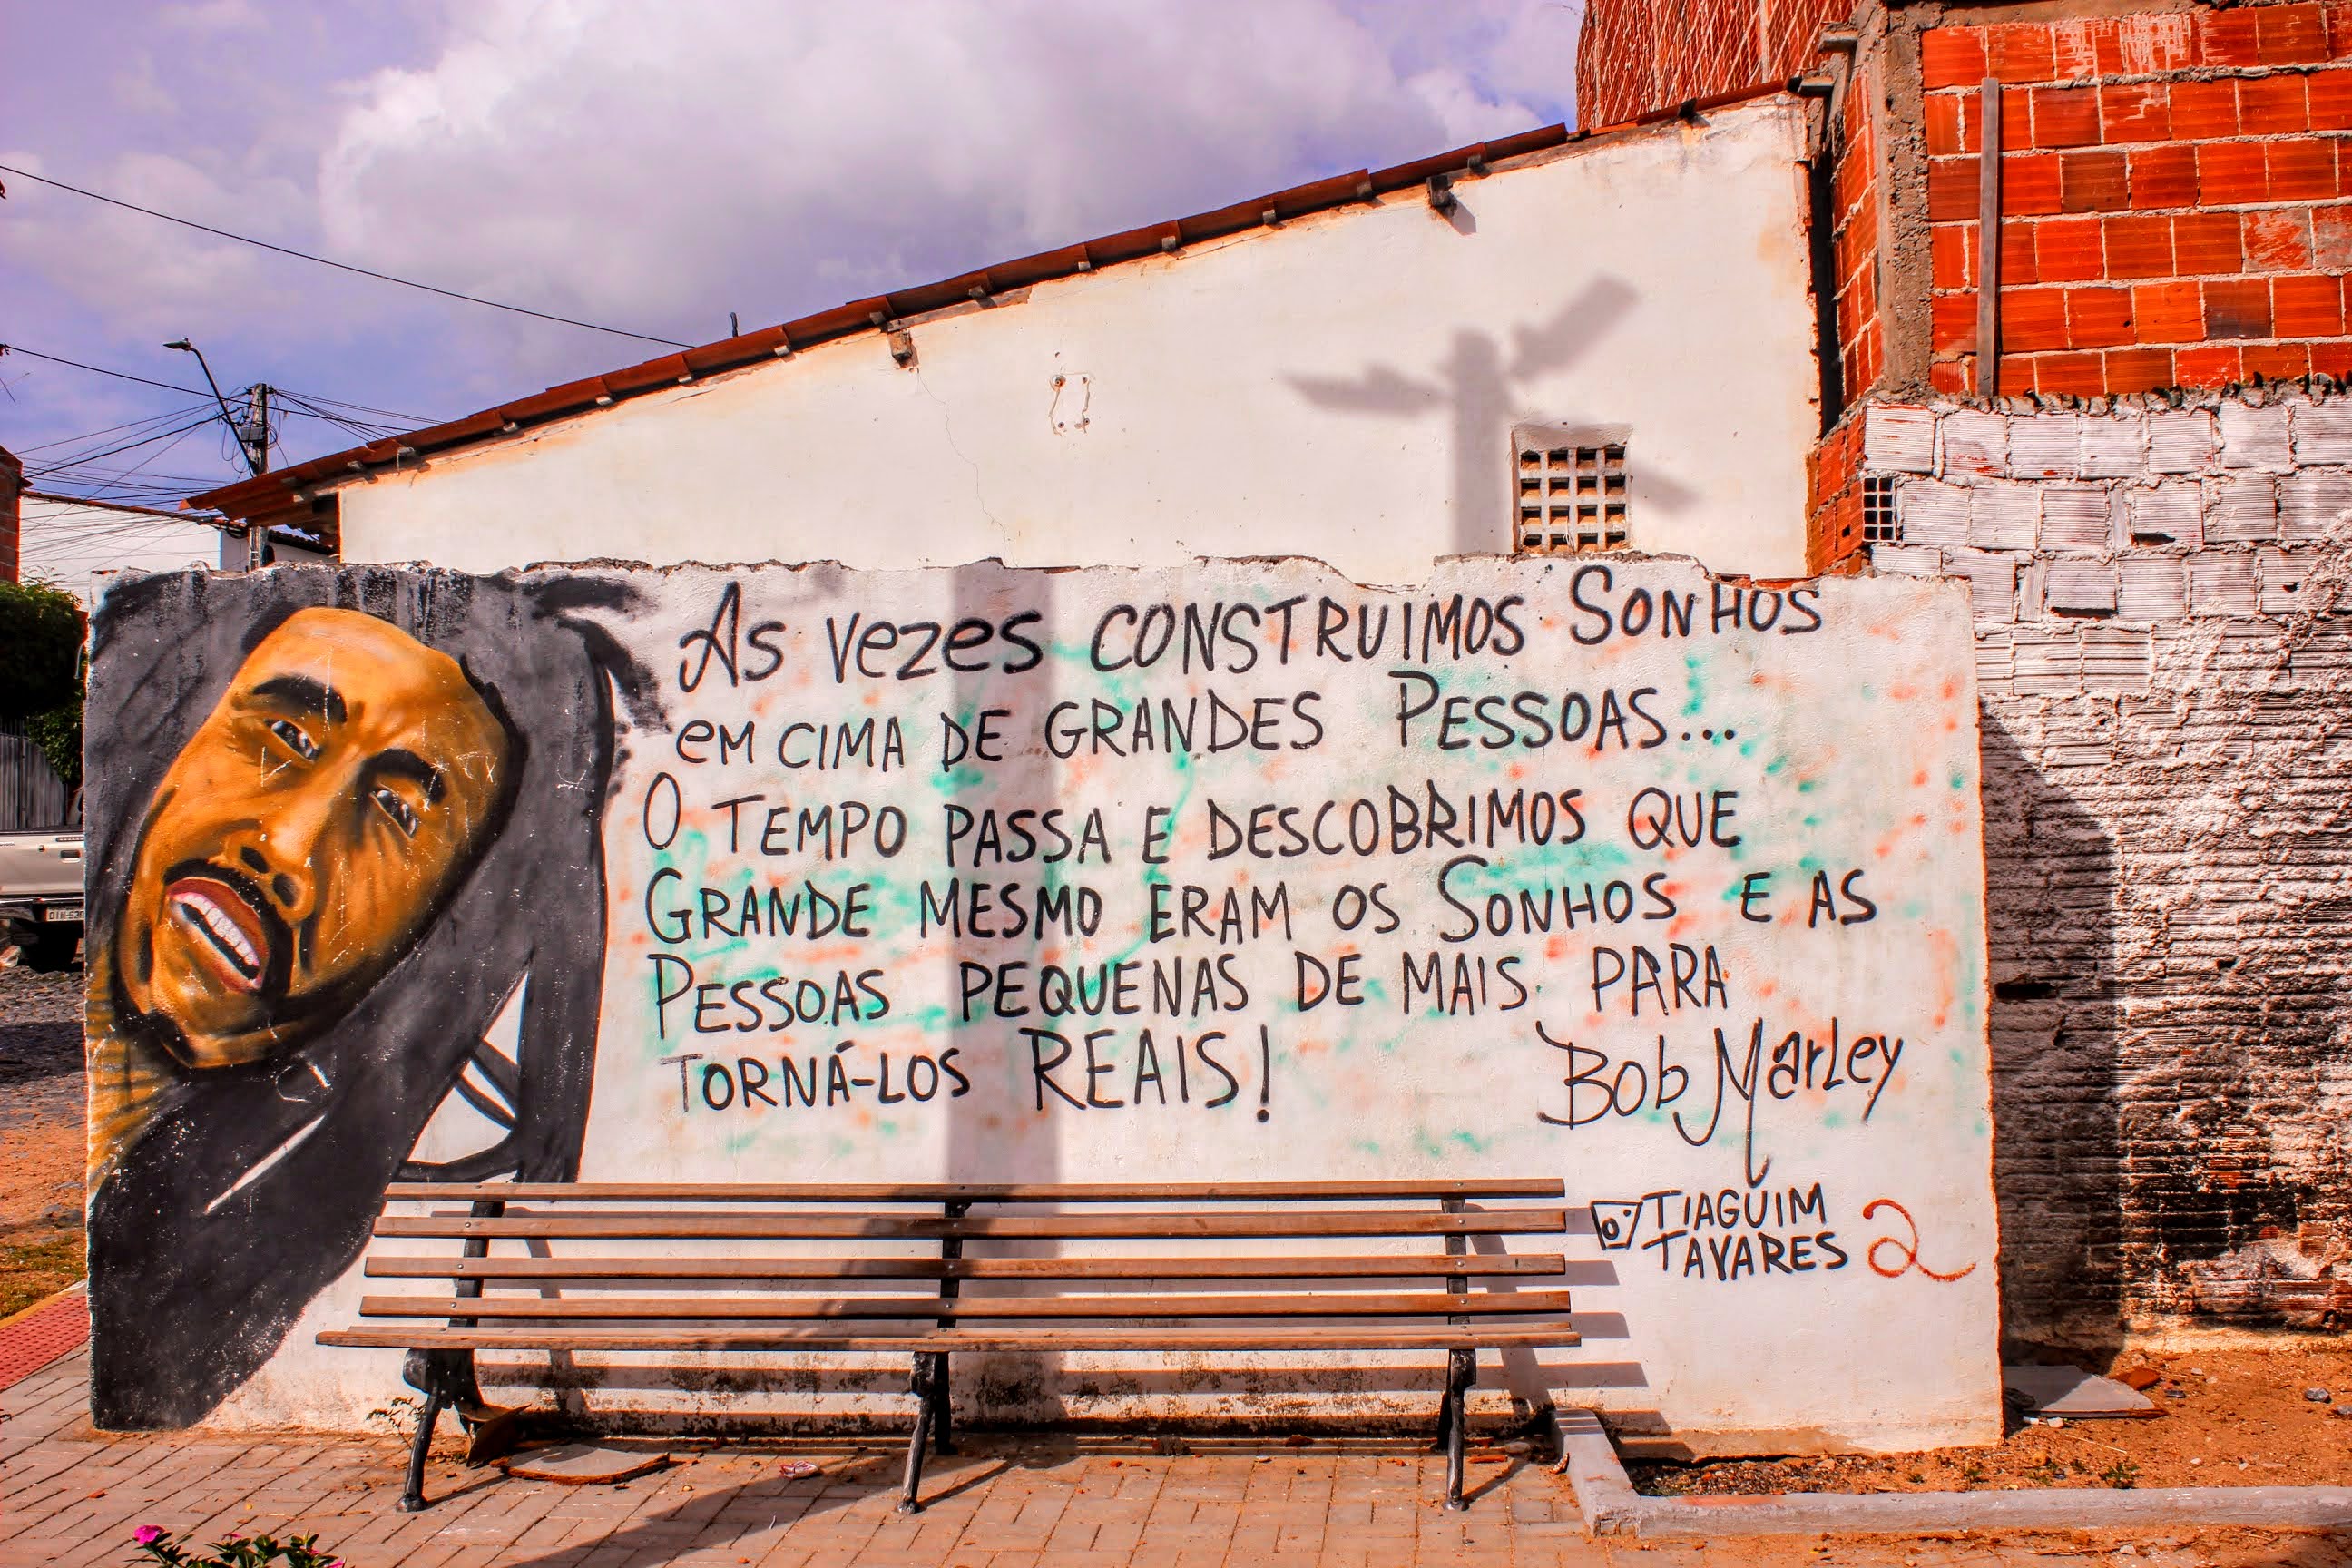 As vezes CONSTRUIMOS SONHOS
em CIMA DE GRANDES PESSOAS...
O TEMPO PASSA E DESCOBRIMOS QUE
GRANDE MESMO ERAM OS SONHOS E AS
PESSOAS PEQUENAS DE MAIS PARA
TORNÁ-LOS REAIS!
Bob Marley
TIAGUIM
TAVARES
2